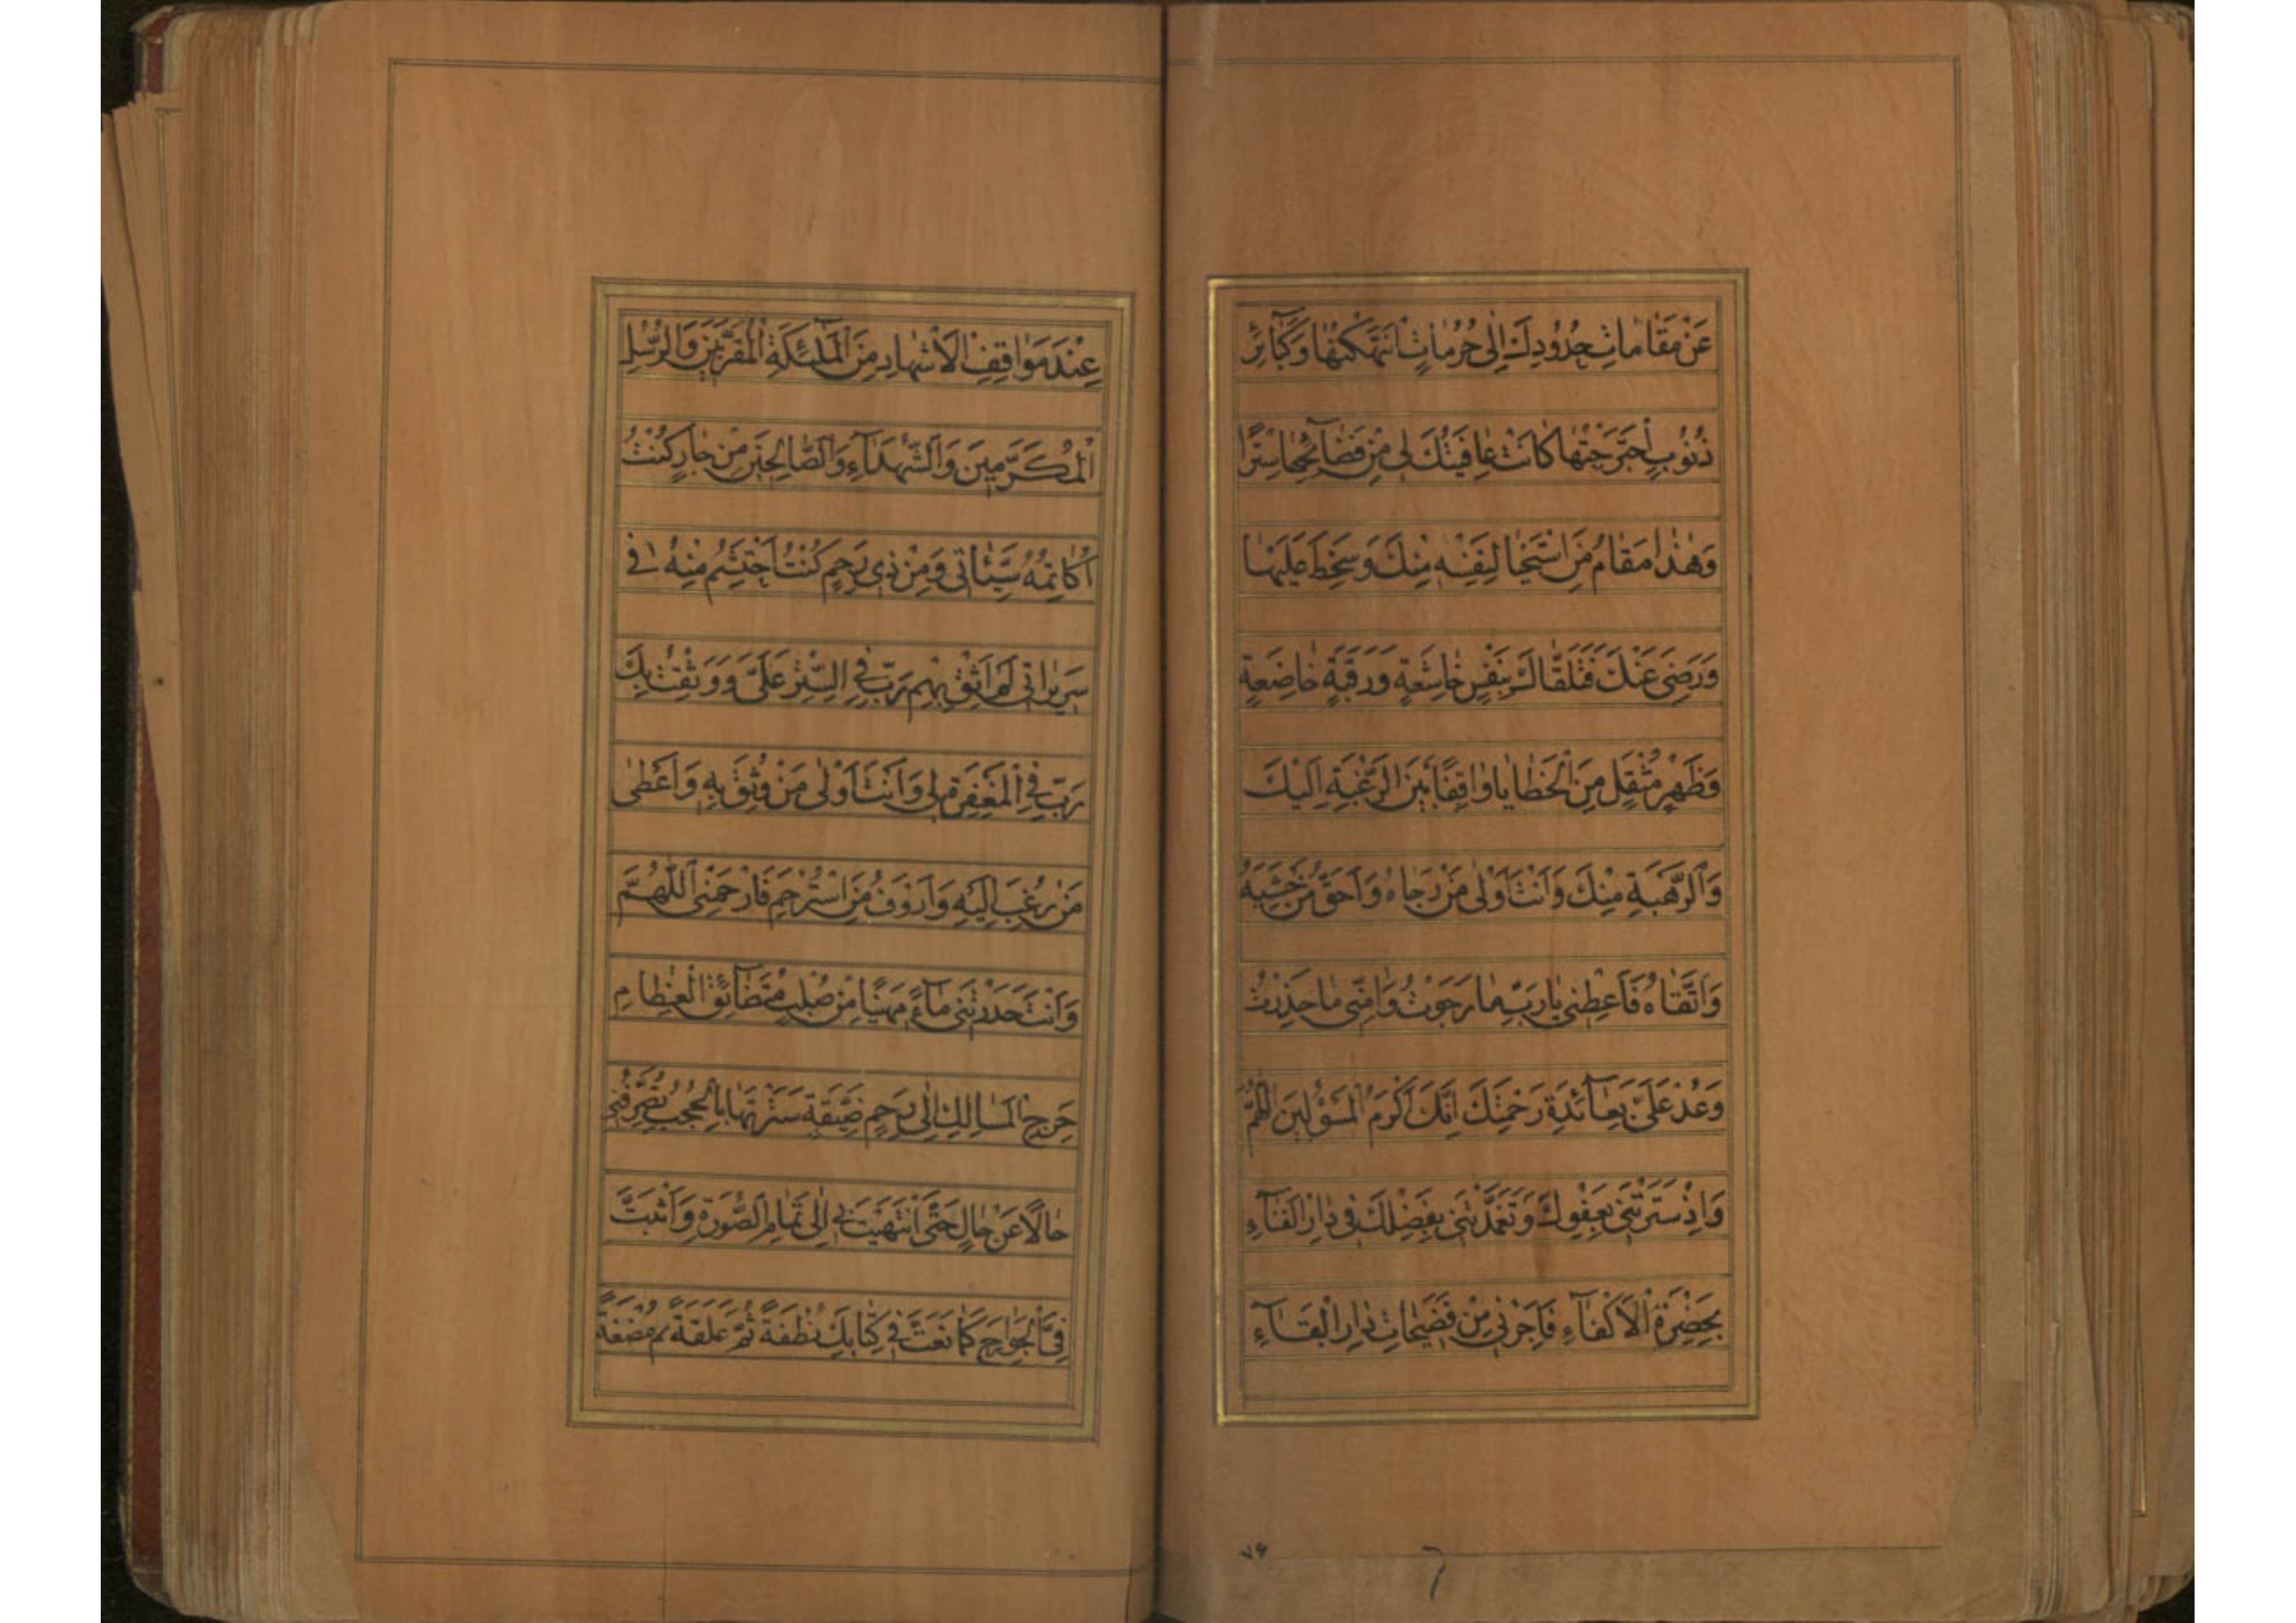 عَنْ مَقٰامٰاتِ حُدُودِكَ اِلٰى حُرُمٰاتٍ انْتَهَكْتُهٰا وَكَبٰٓائِرِ
ذُنُوبٍ اجْتَرَحْتُهٰا كٰانَتْ عٰافِيَتُكَ لى مِنْ فَضٰٓائِحِهٰا سِتْرًا
وَهٰذٰا مَقٰامُ مَنِ اسْتَحْيٰا لِنَفْسِهِ مِنْكَ وَسَخِطَ عَلَيْهٰا
وَرَضِىَ عَنْكَ فَتَلَقّٰاكَ بِنَفْسٍ خٰاشِعَةٍ وَرَقَبَةٍ خٰاضِعَةٍ
وَظَهْرٍ مُثْقَلٍ مِنَ الْخَطٰايٰا وٰاقِفًا بَيْنَ الرَّغْبَةِ اِلَيْكَ
وَالرَّهْبَةِ مِنْكَ وَاَنْتَ اَوْلٰى مَنْ رَجٰاهُ وَاَحَقُّ مَنْ خَشِيَهُ
وَاتَّقٰاهُ فَاَعْطِنى يٰا رَبِّ مٰا رَجَوْتُ وَاٰمِنّى مٰا حَذِرْتُ
وَعُدْ عَلَىَّ بِعٰٓائِدَةِ رَحْمَتِكَ اِنَّكَ اَكْرَمُ الْمَسْؤُلينَ اللّٰهُمَّ
وَاِذْ سَتَرْتَنى بِعَفْوِكَ وَتَغَمَّدْتَنى بِفَضْلِكَ فى دٰارِ الْفَنٰٓاءِ
بِحَضْرَةِ الْاَكْفٰٓاءِ فَاَجِرْنى مِنْ فَضيحٰاتِ دٰارِ الْبَقٰٓاءِ
٧۶
عِنْدَ مَوٰاقِفِ الْاَشْهٰادِ مِنَ الْمَلٰٓئِكَةِ الْمُقَرَّبينَ وَالرُّسُلِ
الْمُكَرَّمينَ وَالشُّهَدٰٓاءِ وَالصّٰالِحينَ مِنْ جٰارٍ كُنْتُ
اُكٰاتِمُهُ سَيِّئٰاتى وَمِنْ ذى رَحِمٍ كُنْتُ اَحْتَشِمُ مِنْهُ فى
سَريرٰاتى لَمْ اَثِقْ بِهِمْ رَبِّ فِى السِّتْرِ عَلَىَّ وَوَثِقْتُ بِكَ
رَبِّ فِى الْمَغْفِرَةِ لى وَاَنْتَ اَوْلٰى مَنْ وُثِقَ بِهِ وَاَعْطٰى
مَنْ رُغِبَ اِلَيْهِ وَاَرْوَفُ مَنِ اسْتُرْحِمَ فَارْحَمْنى اللّٰهُمَّ
وَاَنْتَ حَدَرْتَنى مٰٓاءً مَهينًا مِنْ صُلْبٍ مُتَضٰٓائِقِ الْعِظٰامِ
حَرِجِ الْمَسٰالِكِ اِلٰى رَحِمٍ ضَيِّقَةٍ سَتَرْتَهٰا بِالْحُجُبِ تُصَرِّفُنى
حٰالًا عَنْ حٰالٍ حَتَّى انْتَهَيْتَ بى اِلٰى تَمٰامِ الصُّورَةِ وَاَثْبَتَّ
فِىَّ الْجَوٰارِحَ كَمٰا نَعَتَّ فى كِتٰابِكَ نُطْفَةً ثُمَّ عَلَقَةً ثم مُضْغَةً